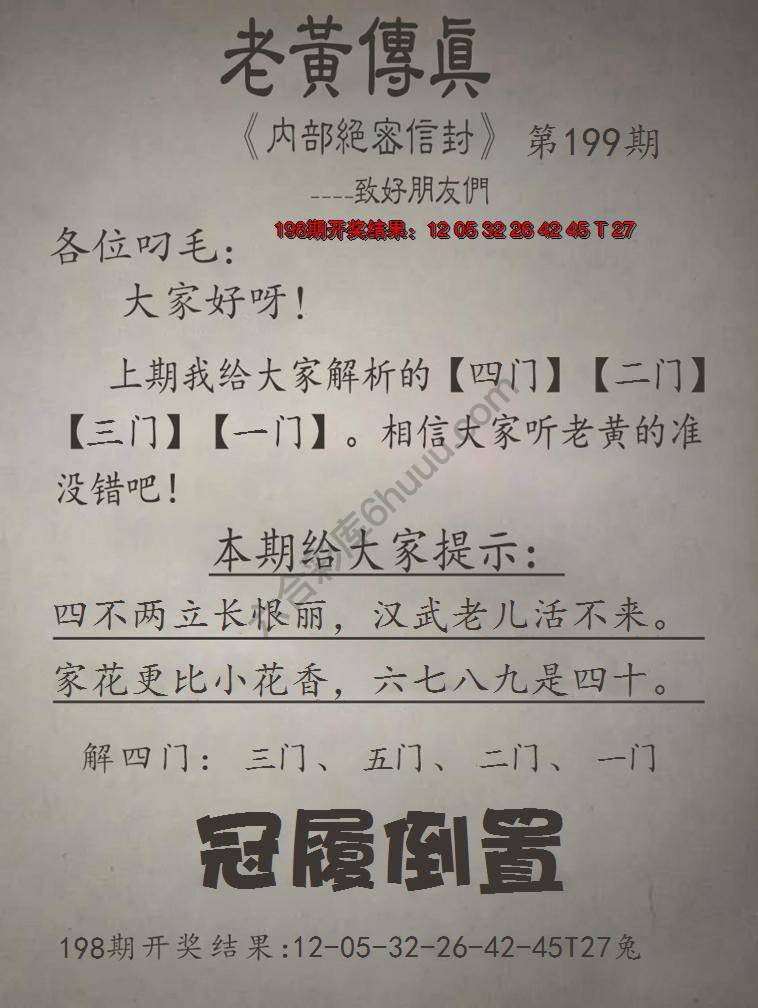 老黃傳真
《内部絕密信封》 第199期
----致好朋友們
198期开奖结果：12 05 32 26 42 45 T 27
各位叼毛：
大家好呀！
上期我给大家解析的【四门】【二门】
【三门】【一门】。相信大家听老黄的准
没错吧！
本期给大家提示：
四不两立长恨丽，汉武老儿活不来。
家花更比小花香，六七八九是四十。
解四门：三门、五门、二门、一门
冠履倒置
198期开奖结果:12-05-32-26-42-45T27兔
六合彩库6huuu.com